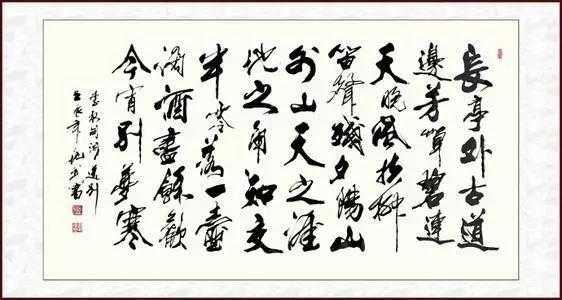 長亭外古道
邊芳草碧連
天晚風拂柳
笛聲殘夕陽山
外山天之涯
地之角知交
半零落一壺
濁酒盡餘歡
今宵別夢寒
李叔同詞送别